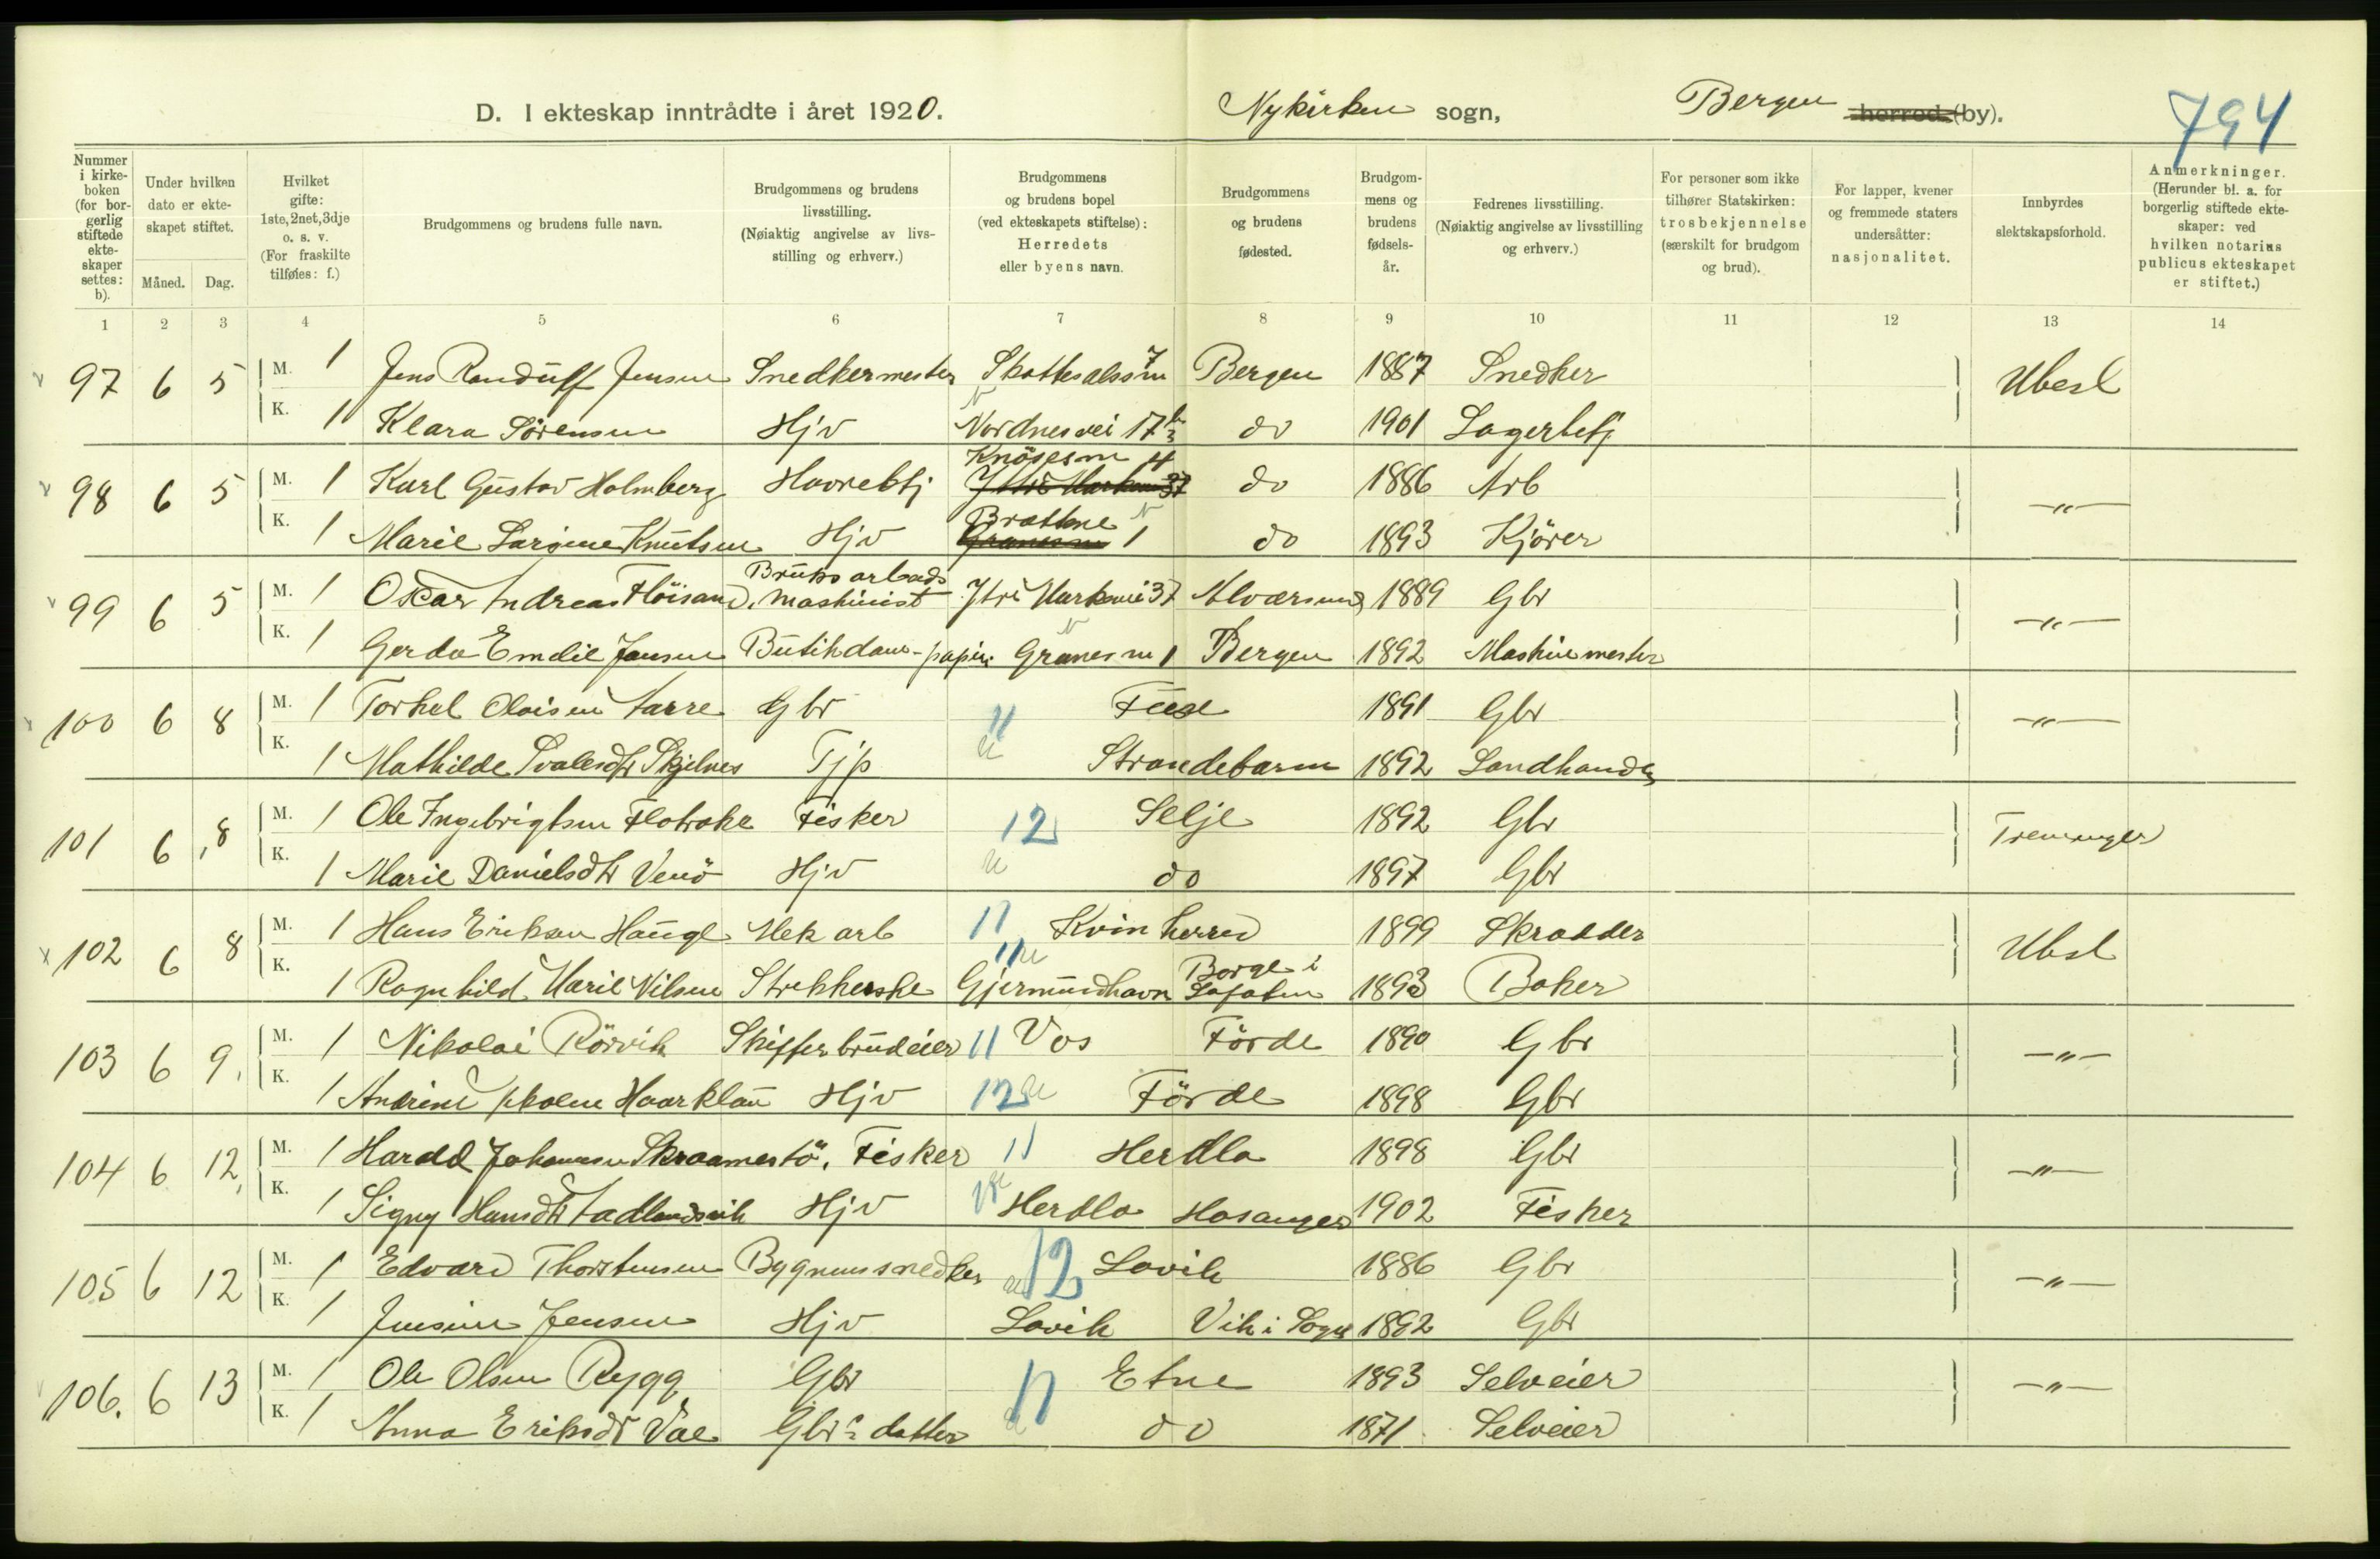 D. I ekteskap inntrådte i året 1920. Nykirken sogn, Bergen herred (by). 794
Nummer i kirkeboken (for borgerlig stiftede ekteskaper settes: b).
Under hvilken dato er ekteskapet stiftet.
Måned. Dag.
Hvilket gifte: 1ste, 2net, 3dje o. s. v. (For fraskilte tilføies: f.)
Brudgommens og brudens fulle navn.
Brudgommens og brudens livsstilling. (Nøiaktig angivelse av livsstilling og erhverv.)
Brudgommens og brudens bopel (ved ekteskapets stiftelse): Herredets eller byens navn.
Brudgommens og brudens fødested.
Brudgommens og brudens fødselsår.
Fedrenes livsstilling. (Nøiaktig angivelse av livsstilling og erhverv.)
For personer som ikke tilhører Statskirken: trosbekjennelse (særskilt for brudgom og brud).
For lapper, kvener og fremmede staters undersåtter: nasjonalitet.
Innbyrdes slektskapsforhold.
Anmerkninger. (Herunder bl. a. for borgerlig stiftede ekteskaper: ved hvilken notarius publicus ekteskapet er stiftet.)
1 2 3 4 5 6 7 8 9 10 11 12 13 14
97 6 5 M. 1 Jens Randulff Jensen Snedkermester 7 Bergen 1887 Snedker Ubesl
K. 1 Klara Sørensen Hjv Nordnesvei 17 do 1901 Lagerbetj
98 6 5 M. 1 Karl Gustav Holmberg Havnebtj Knösesm 4 Ytre Markevei 37 do 1886 Arb -"-
K. 1 Marie Largine Knutsen Hjv Brattene Granesm 1 do 1893 Kjörer
99 6 5 M. 1 Oscar Andreas Flöisand, Bruksarbeids maskinist Ytre Markevei 37 Alværsund 1889 Gbr -"-
K. 1 Gerda Emelie Jansen Butikdame - papir Granesm 1 Bergen 1892 Maskinmester
100 6 8 M. 1 Torkel Olaisen Aarre Gbr 11 Fuse 1891 Gbr -"-
K. 1 Mathilde Skjelnes Tjp Strandebarm 1892 Landhandler
101 6 8 M. 1 Ole Ingebrigtsen Flotroke Fisker 12 Selje 1892 Gbr Tremenger
K. 1 Marie Danielsdtr Venö Hjv do 1897 Gbr
102 6 8 M. 1 Hans Eriksen Hauge Mek arb 11 Kvinherred 1899 Skrædder Ubsl
K. 1 Ragnhild Marie Nilsen Strekkerske 11 Gjermundhavn Borge i Lofoten 1893 Baker
103 6 9. M. 1 Nikolai Rörvik Skifferbrudeier 11 Vos Förde 1890 Gbr -"-
K. 1 Andrine Haarklau Hjv 12 Förde 1898 Gbr
104 6 12, M. 1 Harald Johannesen Skraamestö. Fisker 11 Herdla 1898 Gbr -"-
K. 1 Signy Hansdtr Aadlandsvik Hjv Herdla Hosanger 1902 Fisker
105 6 12 M. 1 Edvard Thorstensen Bygningssnedker 12 Lavik 1886 Gbr -"-
K. 1 Jensine Jensen Hjv Lavik Vik i Sogn 1892 Gbr
106. 6 13 M. 1 Ole Olsen Rygg Gbr 11 Etne 1893 Selveier -"-
K. 1 Anna Eriksdtr Vae Gbrs datter do 1871 Selveier